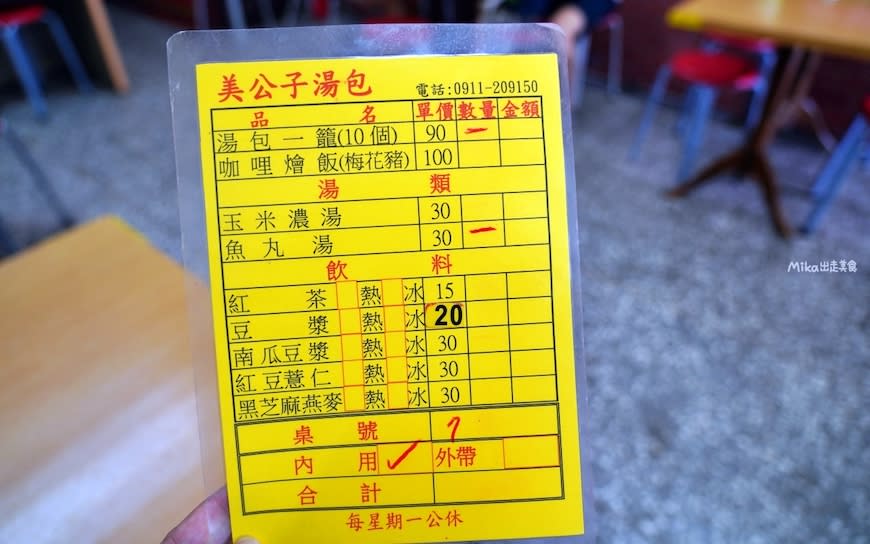 美公子湯包 電話:0911-209150
品名 單價 數量 金額
湯包一籠(10個) 90 一
咖哩燴飯(梅花豬) 100
湯類
玉米濃湯 30
魚丸湯 30 一
飲料
紅茶 熱 冰 15
豆漿 熱 冰 20
南瓜豆漿 熱 冰 30
紅豆薏仁 熱 冰 30
黑芝麻燕麥 熱 冰 30
桌號
內用 ✓ 外帶
合計
每星期一公休
Mika出走美食